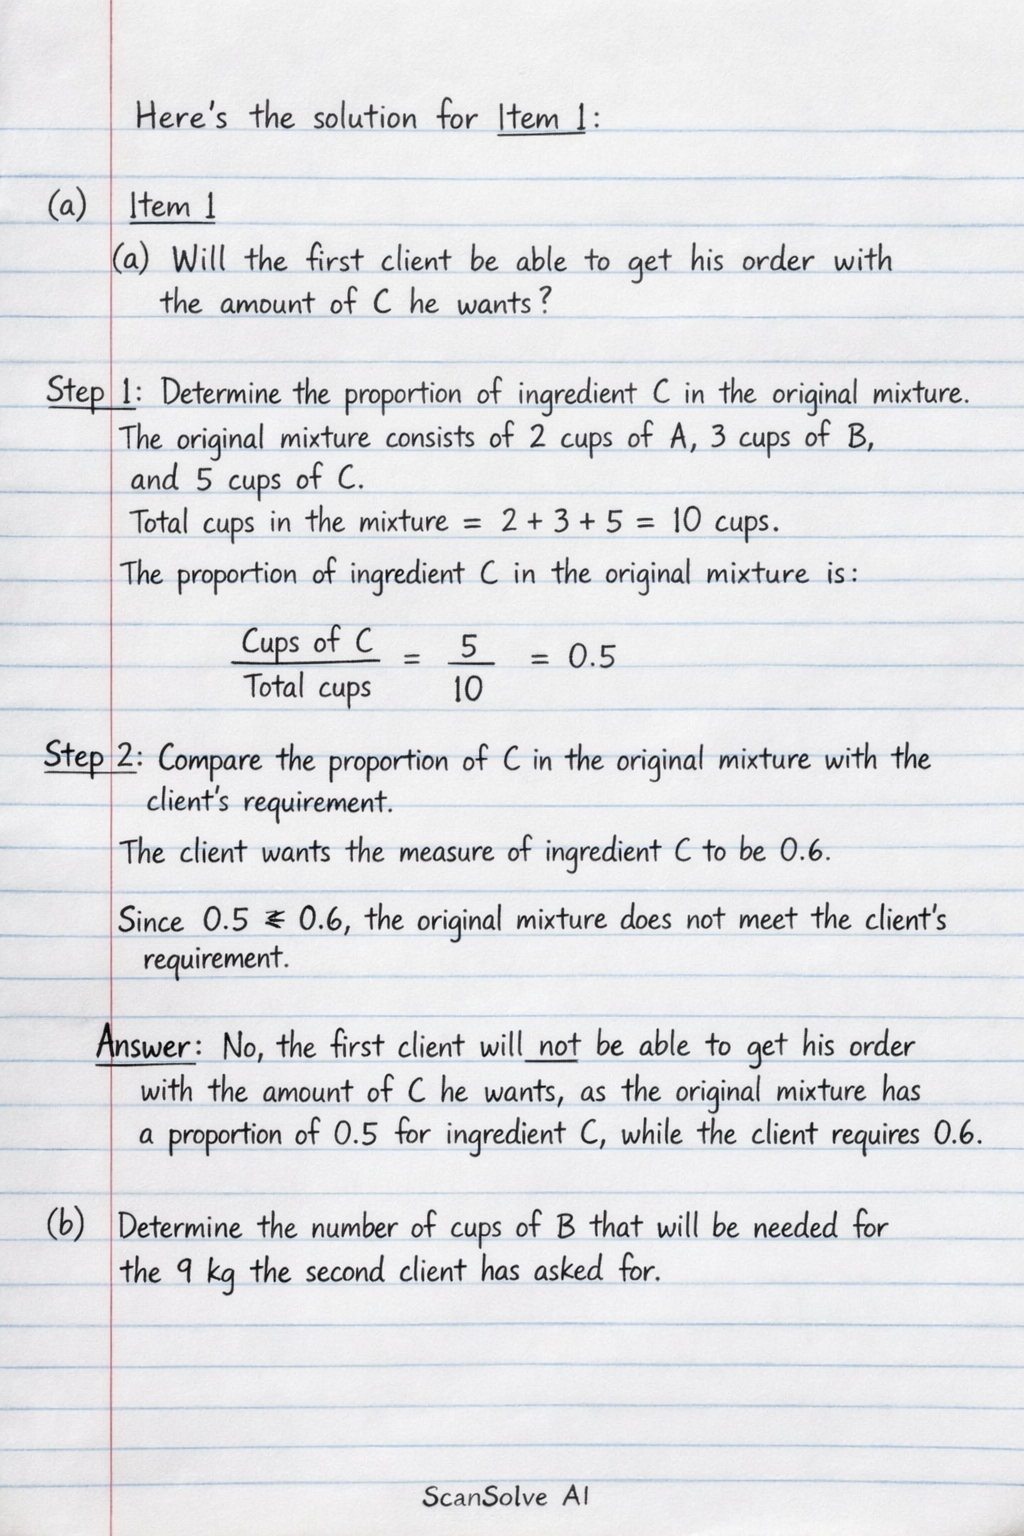 Here's the solution for Item 1:
(a) Item 1
(a) Will the first client be able to get his order with
the amount of C he wants?
Step 1: Determine the proportion of ingredient C in the original mixture.
The original mixture consists of 2 cups of A, 3 cups of B,
and 5 cups of C.
Total cups in the mixture = 2 + 3 + 5 = 10 cups.
The proportion of ingredient C in the original mixture is:
Cups of C / Total cups = 5 / 10 = 0.5
Step 2: Compare the proportion of C in the original mixture with the
client's requirement.
The client wants the measure of ingredient C to be 0.6.
Since 0.5 0.6, the original mixture does not meet the client's
requirement.
Answer: No, the first client will not be able to get his order
with the amount of C he wants, as the original mixture has
a proportion of 0.5 for ingredient C, while the client requires 0.6.
(b) Determine the number of cups of B that will be needed for
the 9 kg the second client has asked for.
ScanSolve AI